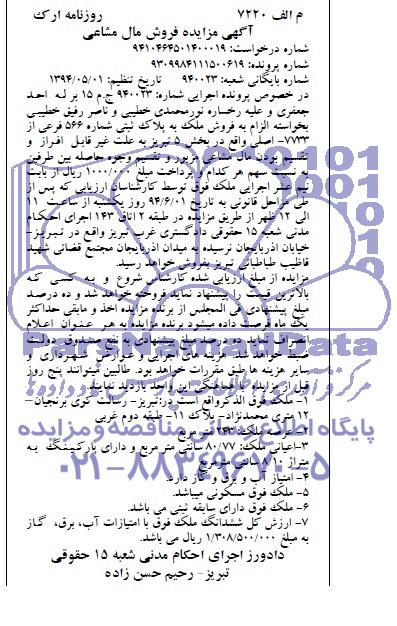 م الف ۷۲۲۰ روزنامه ارک
آگهی مزایده فروش مال مشاعی
شماره درخواست: ۹۴۱۰۴۶۴۵۰۱۴۰۰۰۱۹
شماره پرونده: ۹۳۰۹۹۸۴۱۱۱۵۰۰۶۱۹
شماره بایگانی شعبه: ۹۴۰۰۲۳ تاریخ تنظیم: ۱۳۹۴/۰۵/۰۱
در خصوص پرونده اجرایی شماره: ۹۴۰۰۲۳ ج.م ۱۵ بر له احد
جعفری و علیه رخساره نورمحمدی خطیبی و ناصر رفیق خطیبی
بخواسته الزام به فروش ملک به پلاک ثبتی شماره ۵۶۶ فرعی از
۷۷۳۳- اصلی واقع در بخش ۵ تبریز به علت غیر قابل افراز و
تقسیم بودن مال مشاعی مزبور و تقسیم وجوه حاصله بین طرفین
به نسبت سهم هر کدام و پرداخت مبلغ ۱۰۰۰/۰۰۰ ریال از بابت
نیم عشر اجرایی ملک فوق توسط کارشناسان ارزیابی که پس از
طی مراحل قانونی به تاریخ ۹۴/۶/۰۱ روز یکشنبه از ساعت ۱۱
الی ۱۲ ظهر از طریق مزایده در طبقه ۲ اتاق ۱۴۳ اجرای احکام
مدنی شعبه ۱۵ حقوقی دادگستری غرب تبریز واقع در تبریز-
خیابان آذربایجان نرسیده به میدان آذربایجان مجتمع قضائی شهید
قاظیب طباطبایی تبریز بفروش خواهد رسید.
مزایده از مبلغ ارزیابی شده کارشناس شروع و به کسی که
بالاترین قیمت را پیشنهاد نماید فروخته خواهد شد و ده درصد
مبلغ پیشنهادی فی المجلس از برنده مزایده اخذ و مابقی حداکثر
یک ماه فرصت داده میشود برنده مزایده به هر عنوان اعلام
انصراف نماید ده درصد مبلغ پیشنهادی به نفع صندوق دولت
ضبط خواهد شد. هزینه های اجرایی و عوارض شهرداری و
سایر هزینه ها طبق مقررات خواهد بود. طالبین میتوانند پنج روز
قبل از مزایده با هماهنگی این واحد بازدید نمایند.
۱- ملک فوق الذکرواقع است در:تبریز- رسالت کوی برنجیان-
۱۲ متری محمدنژاد- پلاک ۱۱- طبقه دوم غربی
۲- عرصه ملک: ۲۴۳ متر مربع
۳-اعیانی ملک: ۸۰/۷۷ سانتی متر مربع و دارای پارکینگ به
متراژ ۱۰/۸ سانتی متر مربع
۴- امتیاز آب و برق و گاز دارد.
۵- ملک فوق مسکونی میباشد.
۶- ملک فوق دارای سابقه ثبتی می باشد.
۷- ارزش کل ششدانگ ملک فوق با امتیازات آب، برق، گاز
به مبلغ ۱/۳۰۸/۵۰۰/۰۰۰ ریال می باشد.
دادورز اجرای احکام مدنی شعبه ۱۵ حقوقی
تبریز- رحیم حسن زاده
ParsNamadData
پایگاه اطلاع رسانی مناقصه و مزایده
۰۲۱-۸۸۳۴۹۶۷۰-۵